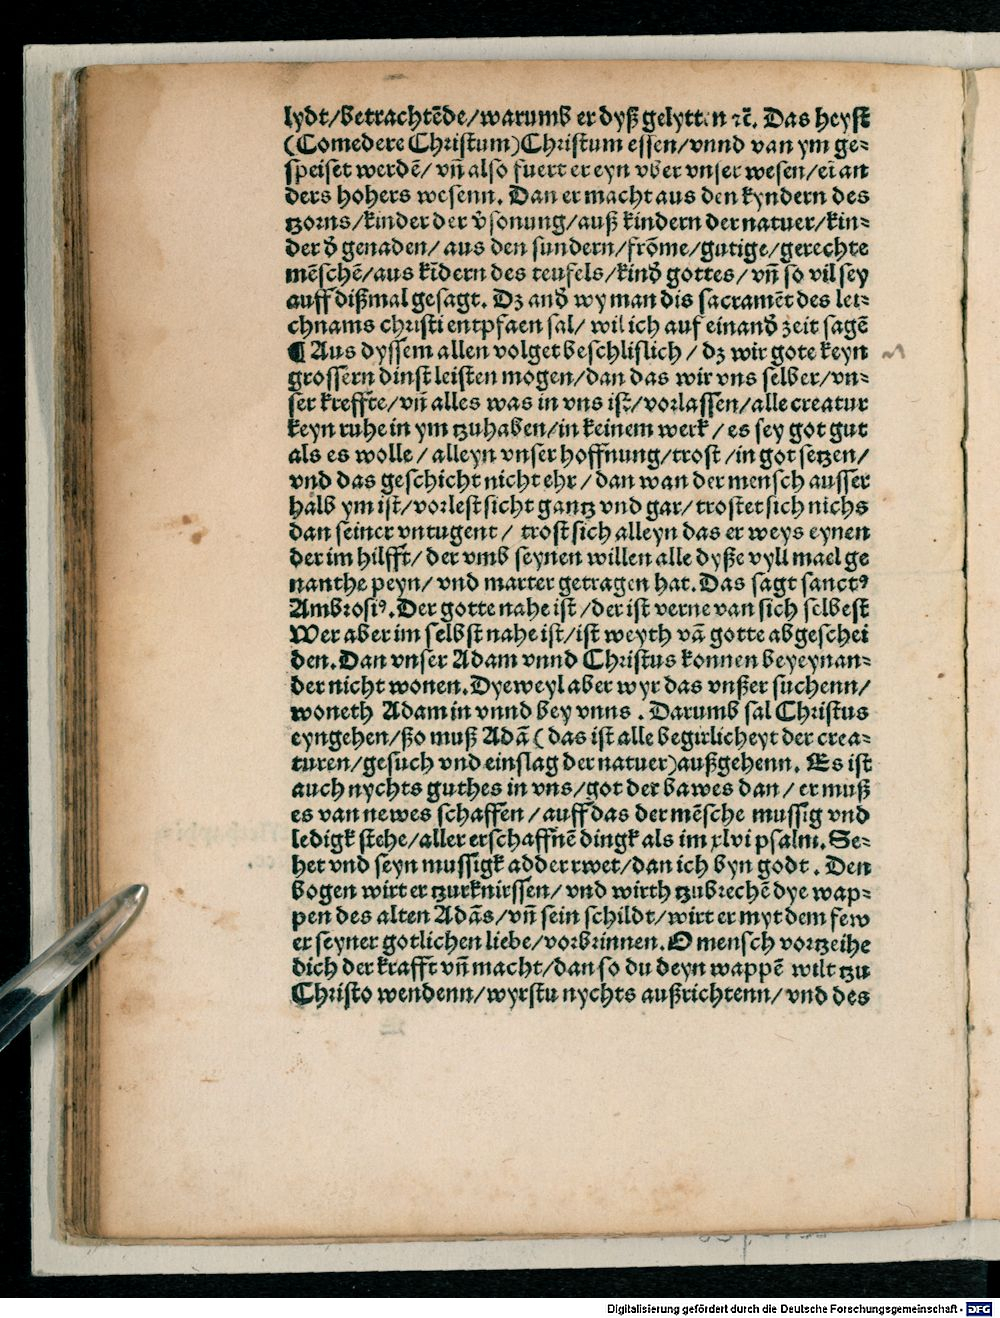 lydt/betrachtēde/warumb er dyß gelytten ⁊c̄. Das heyst
(Comedere Christum)Christum essen/vnnd van ym ge⸗
speiset werdē/ vñ also fuert er eyn vber vnser wesen/ eī an
ders hohers wesenn. Dan er macht aus den kyndern des
tzorns/kinder der v̄sonung/auß kindern der natuer/kin⸗
der d̄ genaden/ aus den sundern/frōme/gutige/gerechte
mēschē/aus kīdern des teufels/kind̄ gottes/ vñ so vil sey
auff dißmal gesagt. Dz and̄ wy man dis sacramēt des lei⸗
chnams christi entpfaen sal/ wil ich auf einand̄ zeit sagē
¶ Aus dyssem allen volget beschlislich / dz wir gote keyn
grossern dinst leisten mogen/dan das wir vns selber/vn⸗
ser kreffte/vñ alles was in vns ist/vorlassen/alle creatur
keyn ruhe in ym tzuhaben/in keinem werk / es sey got gut
als es wolle / alleyn vnser hoffnung/trost /in got setzen/
vnd das geschicht nicht ehr / dan wan der mensch ausser
halb ym ist/vorlest sicht gantz vnd gar/ trostet sich nichs
dan seiner vntugent / trost sich alleyn das er weys eynen
der im hilfft/ der vmb seynen willen alle dyße vyll mael ge
nanthe peyn/ vnd marter getragen hat. Das sagt sanctꝰ
Ambrosiꝰ. Der gotte nahe ist /der ist verne van sich selbest
Wer aber im selbst nahe ist/ist weyth vā gotte abgeschei
den. Dan vnser Adam vnnd Christus konnen beyeynan⸗
der nicht wonen. Dyeweyl aber wyr das vnßer suchenn/
woneth Adam in vnnd bey vnns . Darumb sal Christus
eyngehen/ßo muß Adā ( das ist alle begirlicheyt der crea⸗
turen/gesuch vnd einslag der natuer)außgehenn. Es ist
auch nychts guthes in vns/got der bawes dan/ er muß
es van newes schaffen / auff das der mēsche mussig vnd
ledigk stehe/aller erschaffnē dingk als im xlvi psalm. Se⸗
het vnd seyn mussigk adder rwet/dan ich byn godt . Den
bogen wirt er tzurknirssen/ vnd wirth tzubrechē dye wap⸗
pen des alten Adās/ vñ sein schildt/wirt er myt dem few
er seyner gotlichen liebe/vorbrinnen. O mensch vortzeihe
dich der krafft vñ macht/dan so du deyn wappē wilt tzu
Christo wendenn/wyrstu nychts außrichtenn/ vnd des
Digitalisierung gefördert durch die Deutsche Forschungsgemeinschaft - DFG